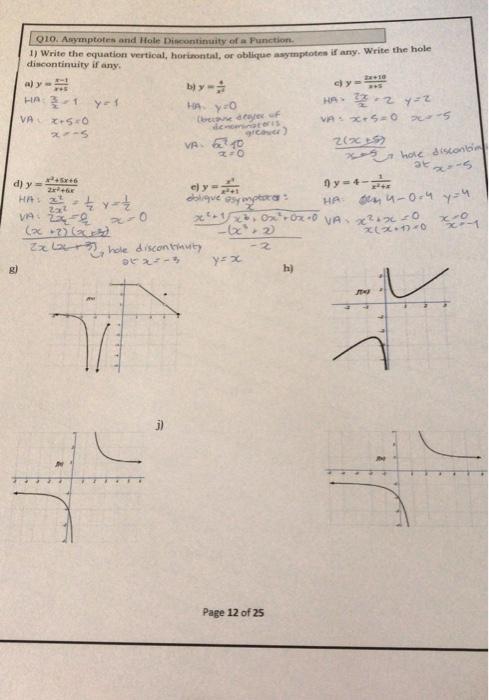 Q10. Asymptotes and Hole Discontinuity of a Function.
1) Write the equation vertical, horizontal, or oblique asymptotes if any. Write the hole
discontinuity if any.
a) y = x-1/x+5
HA: x/x = 1 y=1
VA: x+5=0
x=-5
b) y = 4/x²
HA. y=0
(because degree of
denominator is
greater)
VA:
x=0
c) y = 2x+10/x+5
HA: 2x/x = 2 y=2
VA: x+5=0 x=-5
2(x+5)
x+5 hole discontin
at x=-5
d) y = x²+5x+6/2x²+6x
HA: x²/2x² = 1/2 y=1/2
VA: 2x=0 x=0
(x+2)(x+3)
2x(x+3) hole discontinuity
at x=-3
e) y = x³/x²+1
oblique asymptotes:
x
x²+1 x³+0x²+0x+0
-(x³+x)
-x
y=x
f) y = 4 - 1/x²+x
HA: 4-0=4 y=4
VA: x²+x=0 x=0
x(x+1)=0 x=-1
g)
h)
f(x)
j)
f(x)
Page 12 of 25